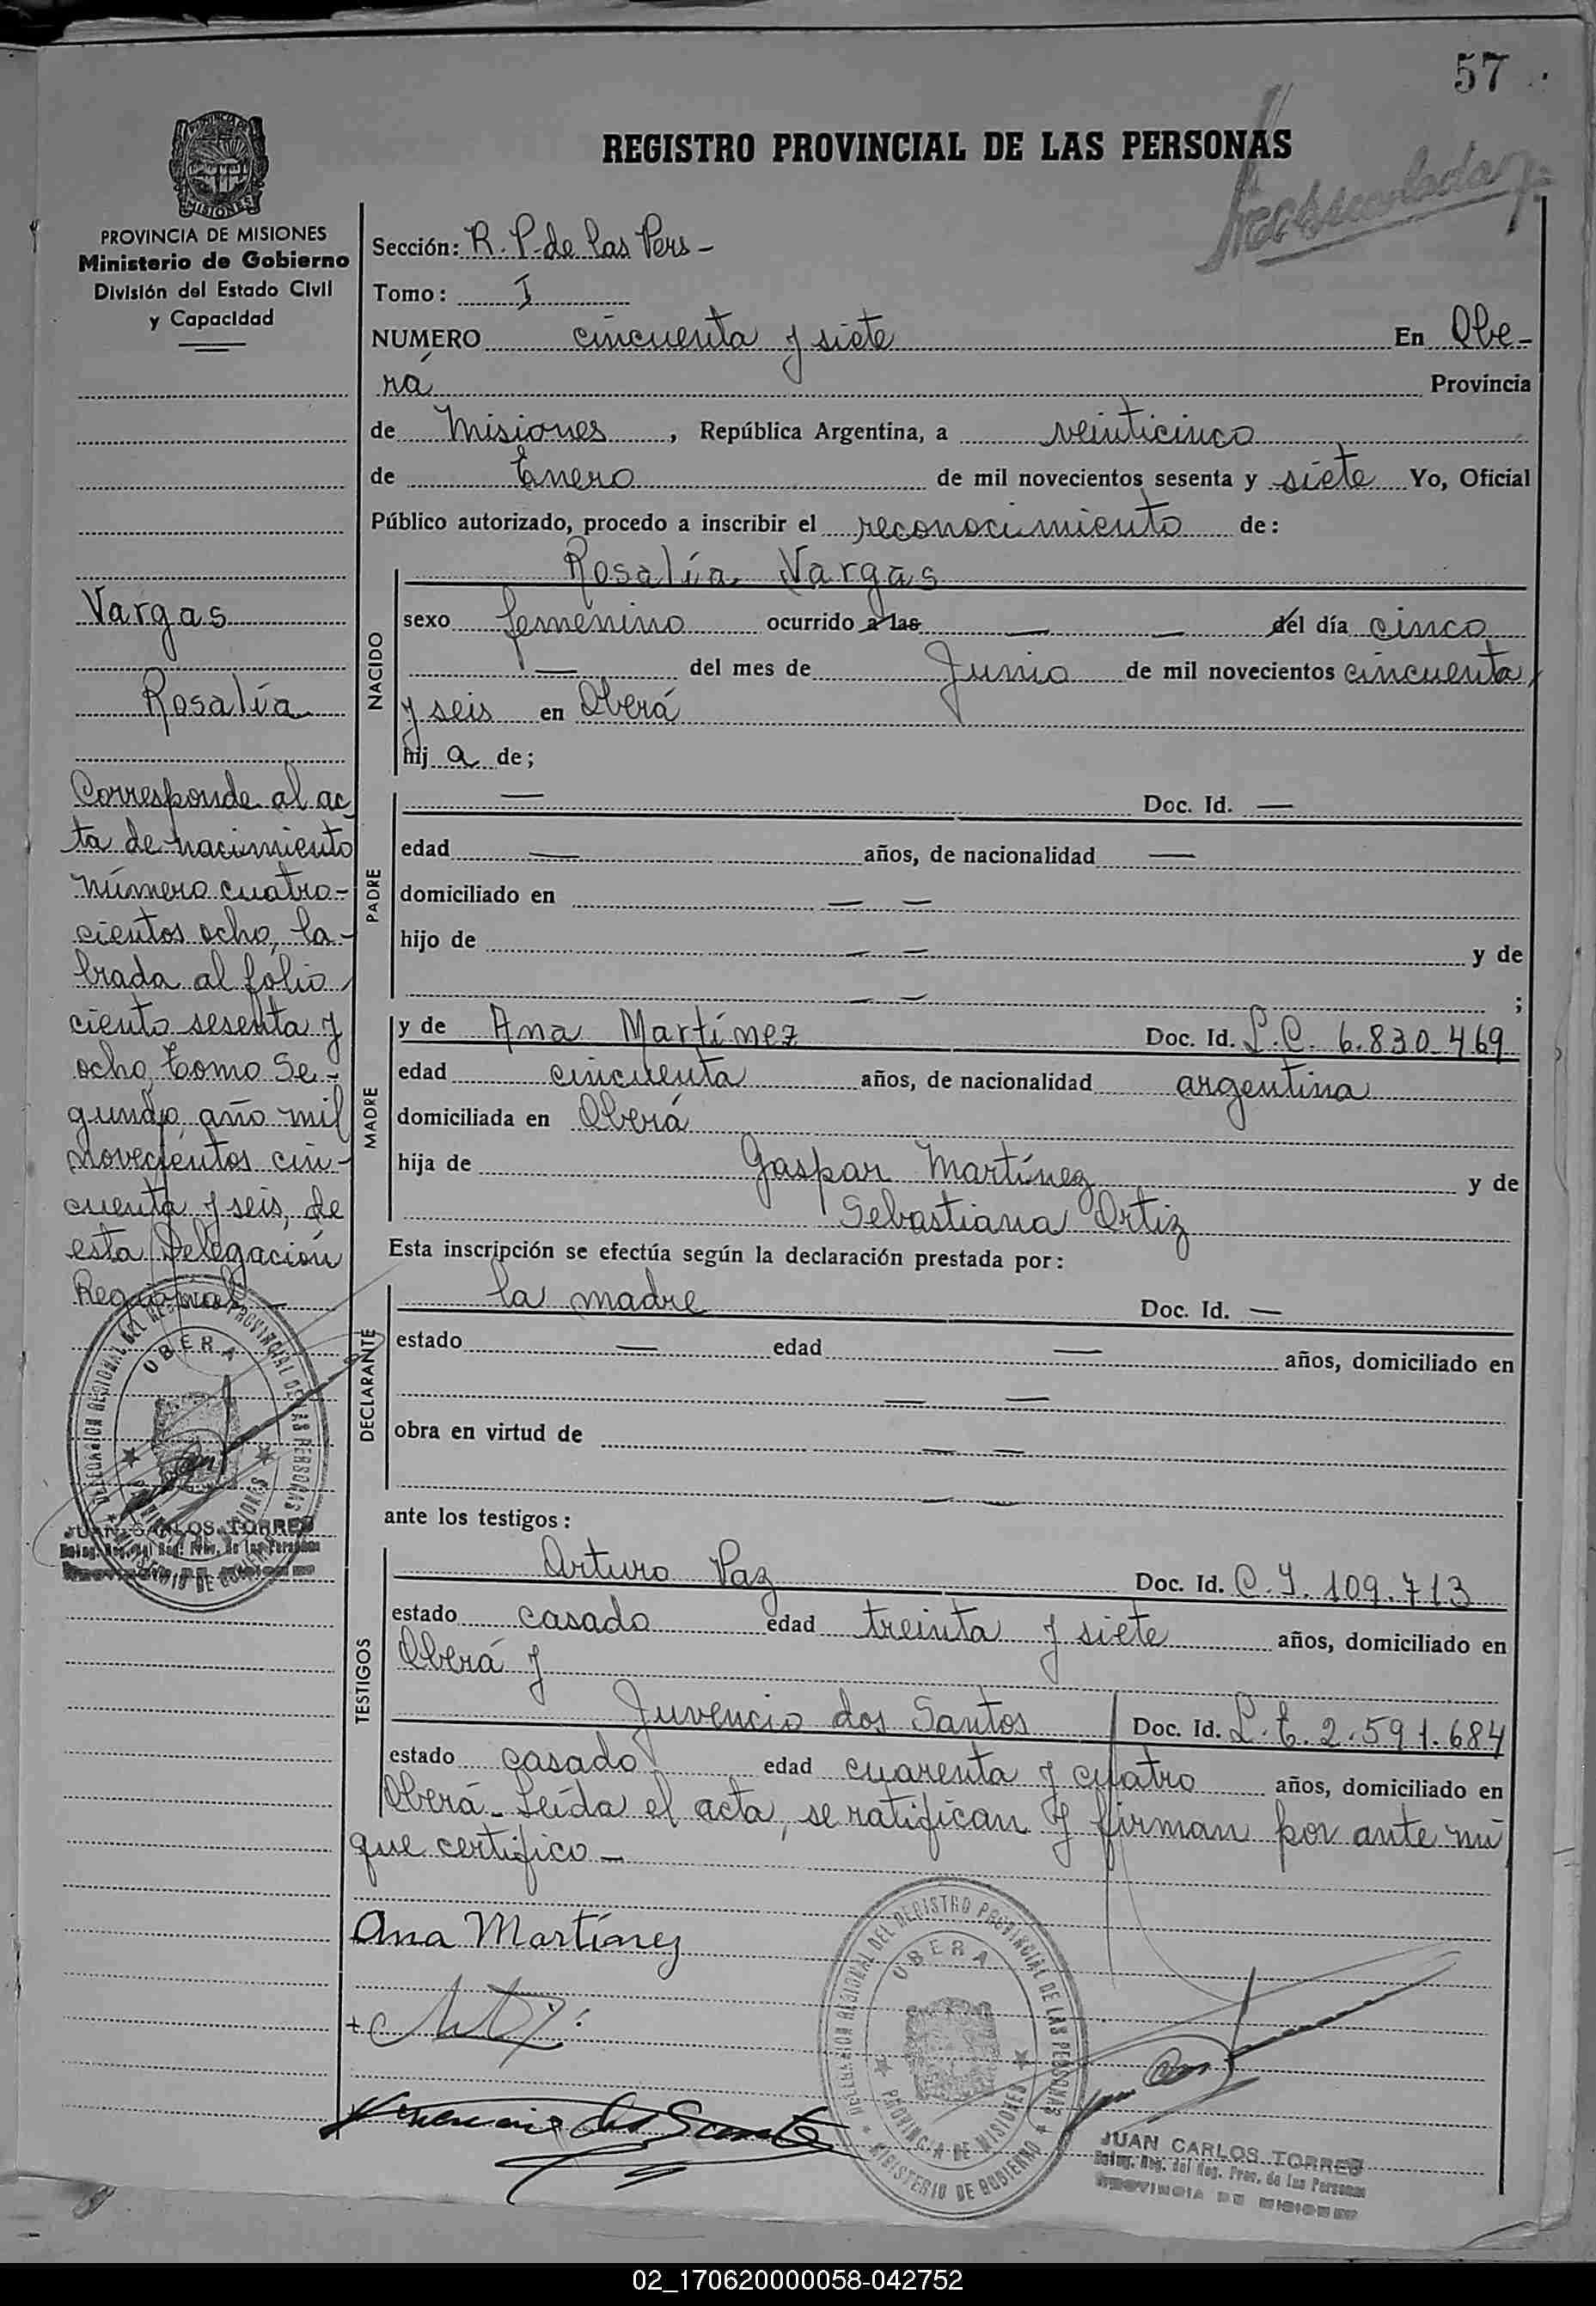 57
REGISTRO PROVINCIAL DE LAS PERSONAS
PROVINCIA DE MISIONES
Ministerio de Gobierno
División del Estado Civil
y Capacidad
Sección: R. P. de las Pers -
Tomo: I
NUMERO cincuenta y siete En Obe-
rá Provincia
de Misiones, República Argentina, a veinticinco
de Enero de mil novecientos sesenta y siete Yo, Oficial
Público autorizado, procedo a inscribir el reconocimiento de:
NACIDO
Rosalía Vargas
sexo femenino ocurrido a las — — del día cinco
— del mes de Junio de mil novecientos cincuenta
y seis en Oberá
hij a de;
Vargas
Rosalía
Corresponde al ac
ta de nacimiento
número cuatro-
cientos ocho, la-
brada al folio
ciento sesenta y
ocho, Tomo Se-
gundo, año mil
novecientos cin-
cuenta y seis, de
esta Delegación
Regional
PADRE
— Doc. Id. —
edad — años, de nacionalidad —
domiciliado en — —
hijo de — — y de
— — ;
MADRE
y de Ana Martínez Doc. Id. L.C. 6.830.469
edad cincuenta años, de nacionalidad argentina
domiciliada en Oberá
hija de Gaspar Martínez y de
Sebastiana Ortiz
Esta inscripción se efectúa según la declaración prestada por:
DECLARANTE
la madre Doc. Id. —
estado — edad — años, domiciliado en
— —
obra en virtud de — —
— —
ante los testigos:
TESTIGOS
Arturo Paz Doc. Id. C.I. 109.713
estado casado edad treinta y siete años, domiciliado en
Oberá y
Juvencio dos Santos Doc. Id. L.E. 2.591.684
estado casado edad cuarenta y cuatro años, domiciliado en
Oberá - Leída el acta, se ratifican y firman por ante mí
que certifico -
Ana Martínez
DELEGACION REGIONAL DEL REGISTRO PROVINCIAL DE LAS PERSONAS
OBERA
PROVINCIA DE MISIONES
MINISTERIO DE GOBIERNO
JUAN CARLOS TORRES
Deleg. Reg. del Reg. Prov. de las Personas
PROVINCIA DE MISIONES
DELEGACION REGIONAL DEL REGISTRO PROVINCIAL DE LAS PERSONAS
OBERA
PROVINCIA DE MISIONES
MINISTERIO DE GOBIERNO
JUAN CARLOS TORRES
Deleg. Reg. del Reg. Prov. de las Personas
PROVINCIA DE MISIONES
02_170620000058-042752